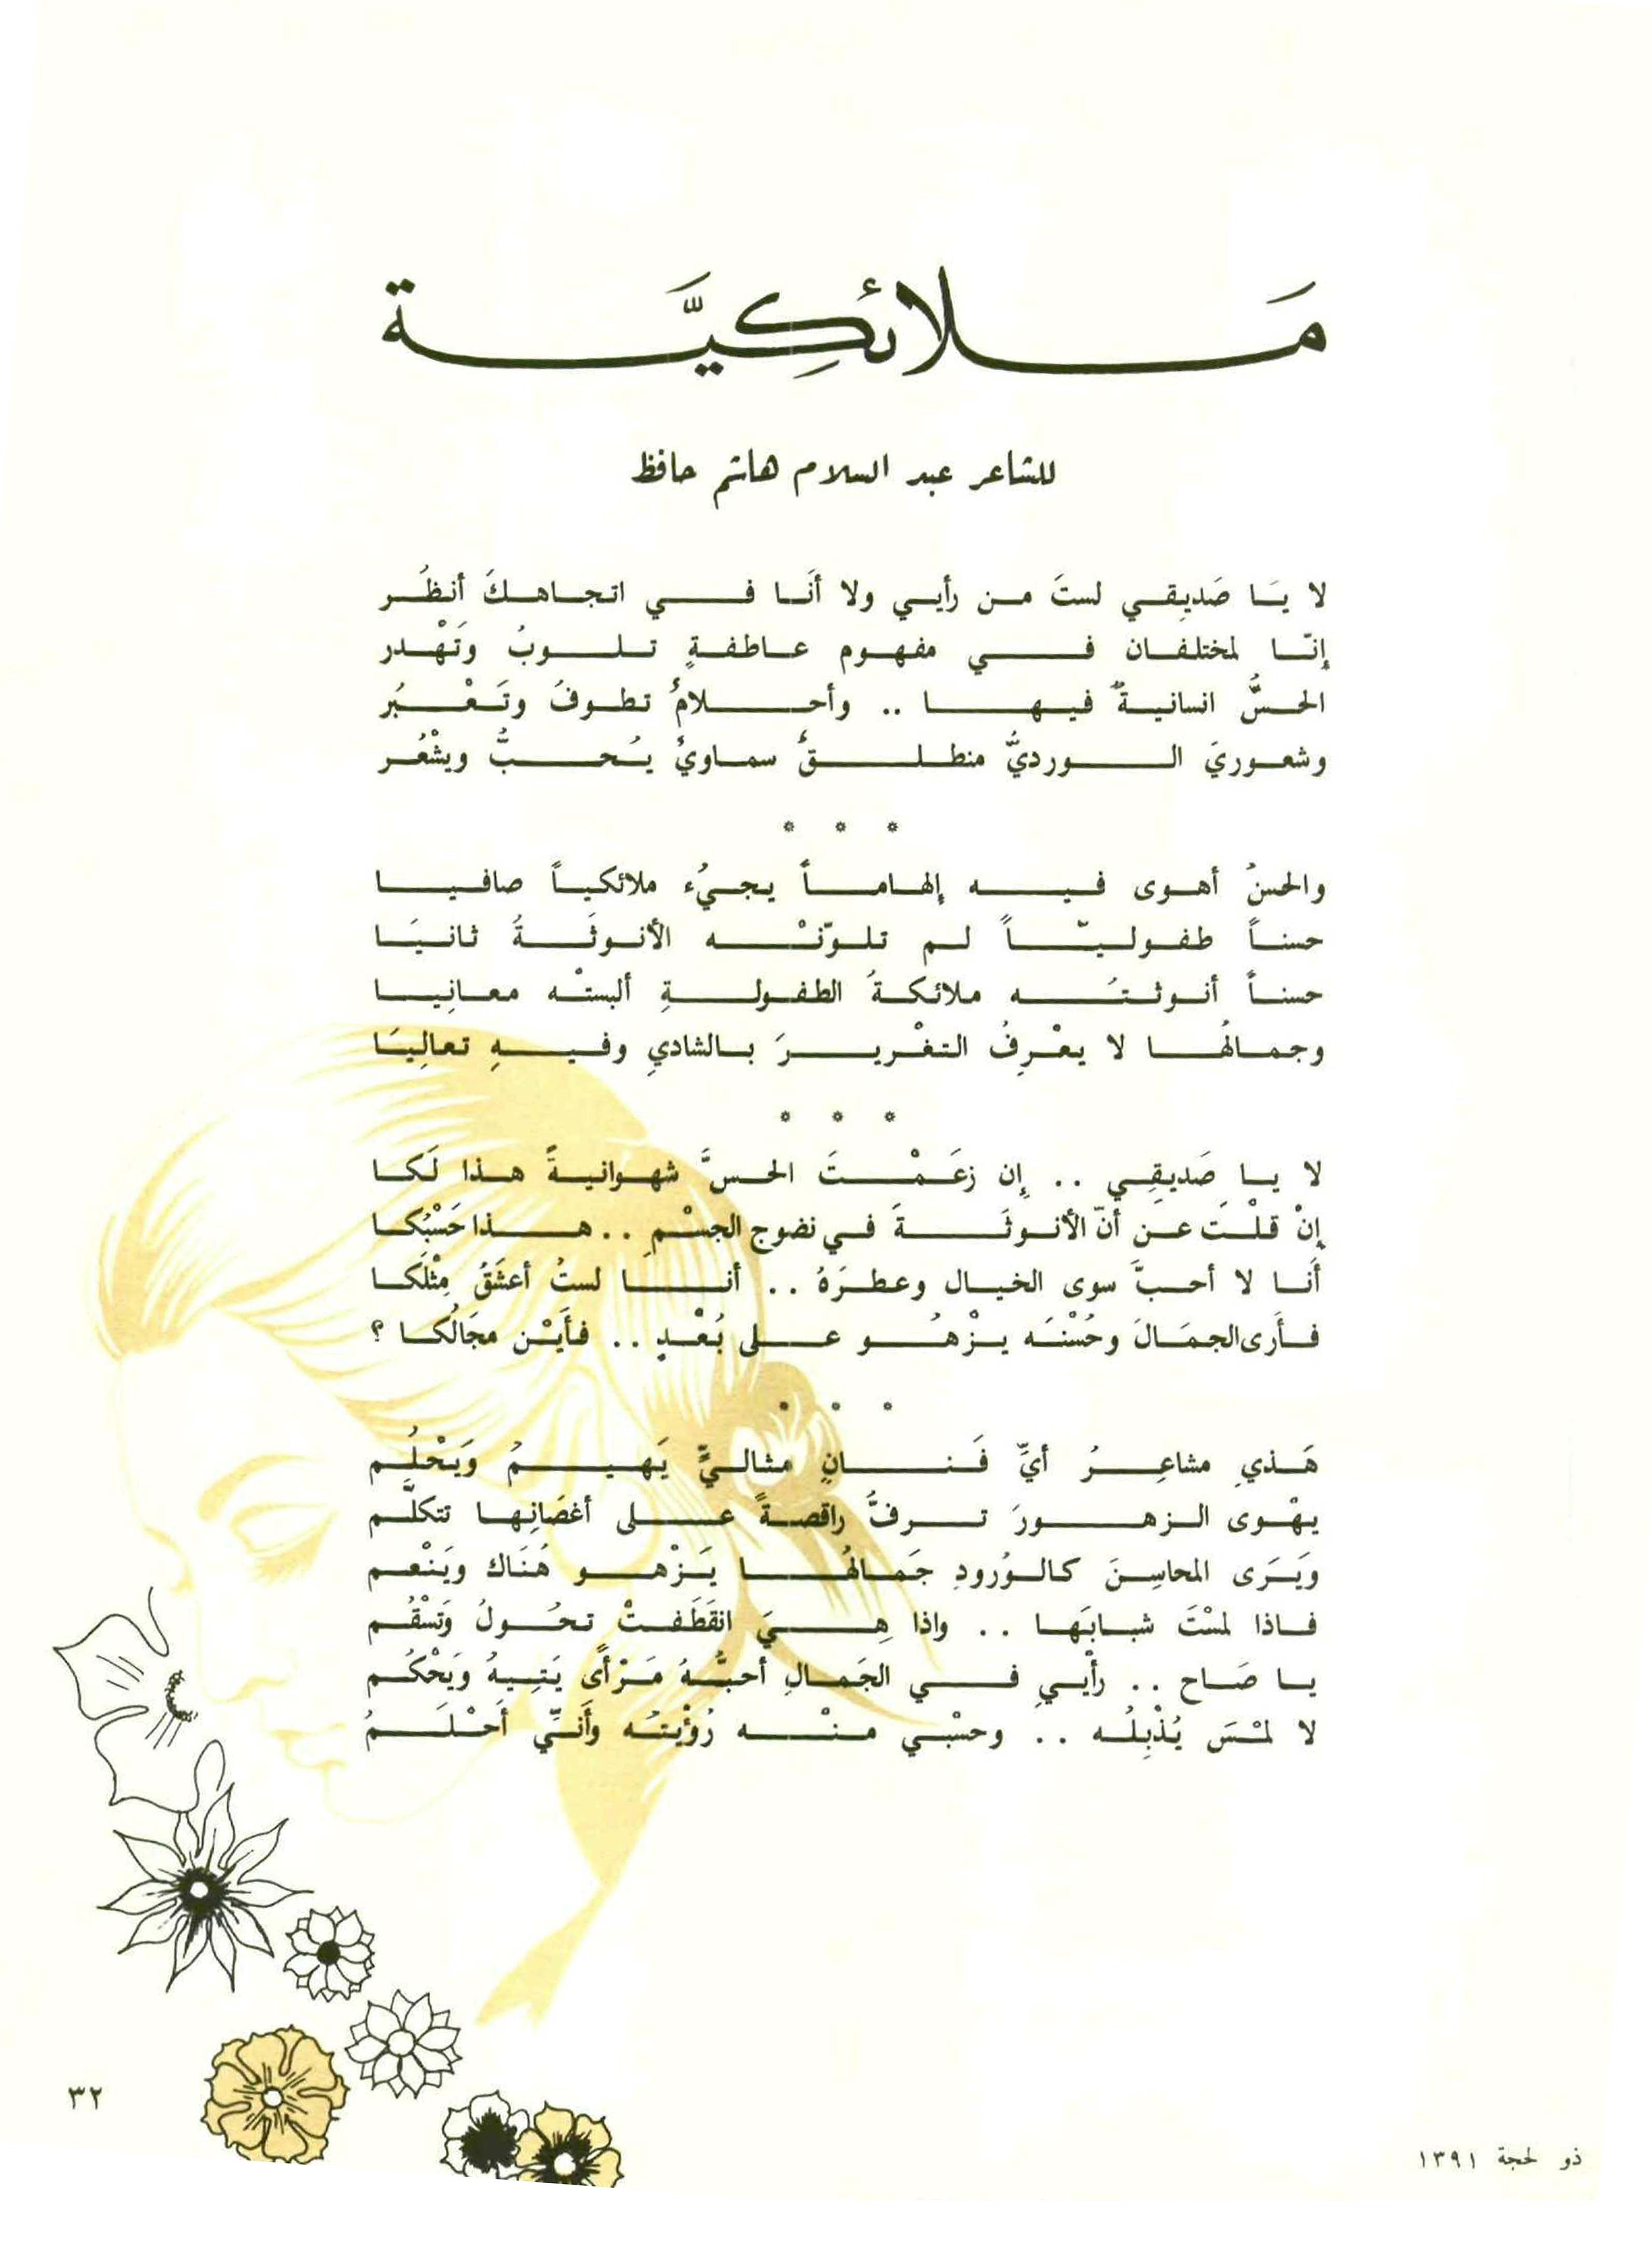 مَلائكِيَّة
للشاعر عبد السلام هاشم حافظ
لا يَا صَديقي لستَ من رأيي ولا أنَا في اتجاهكَ أنظُر
إنّا لمختلفان في مفهوم عاطفةٍ تلوبُ وتَهْدر
الحسُّ انسانيةٌ فيها .. وأحلامٌ تطوفُ وتَعْبُر
وشعوريَ الورديُّ منطلقٌ سماويٌ يُحبُّ ويشْعُر
* * *
والحسنُ أهوى فيه إلهاماً يجيُء ملائكياً صافيا
حسناً طفوليّاً لم تلوّنْه الأنوثَةُ ثانيَا
حسناً أنوثتُه ملائكةُ الطفولةِ ألبستْه معانِيا
وجمالُها لا يعْرِفُ التغْريرَ بالشادي وفيهِ تعالِيَا
* * *
لا يا صَديقِي .. إن زعَمْتَ الحسَّ شهوانيةً هذا لَكا
إنْ قلْتَ عن أنّ الأنوثَةَ في نضوج الجسْمِ .. هذا حَسْبُكا
أنَا لا أحبَّ سوى الخيال وعطرَهُ .. أنا لستُ أعشَقُ مِثْلَكا
فأرى الجمَالَ وحُسْنَه يزْهُو على بُعْدٍ .. فأيْن مجَالُكا ؟
* * *
هَذيِ مشاعِرُ أيِّ فَنانٍ مثاليٍّ يَهيمُ وَيَحْلُم
يهْوى الزهورَ ترفُّ راقصةً على أغصَانِها تتكلَّم
وَيَرَى المحاسِنَ كالوُرودِ جَمالُها يَزْهو هُنَاك ويَنْعم
فاذا لمسْتَ شبابَها .. واذا هِيَ انقَطَفتْ تحُولُ وَتسْقُم
يا صَاح .. رأيي في الجَمالِ أحبُّهُ مَرْأًى يَتِيهُ وَيَحْكُم
لا لمْسَ يُذْبِلُه .. وحسْبي منْه رُؤْيتُه وأنيِّ أحْلَمُ
٣٢
ذو لحجة ١٣٩١